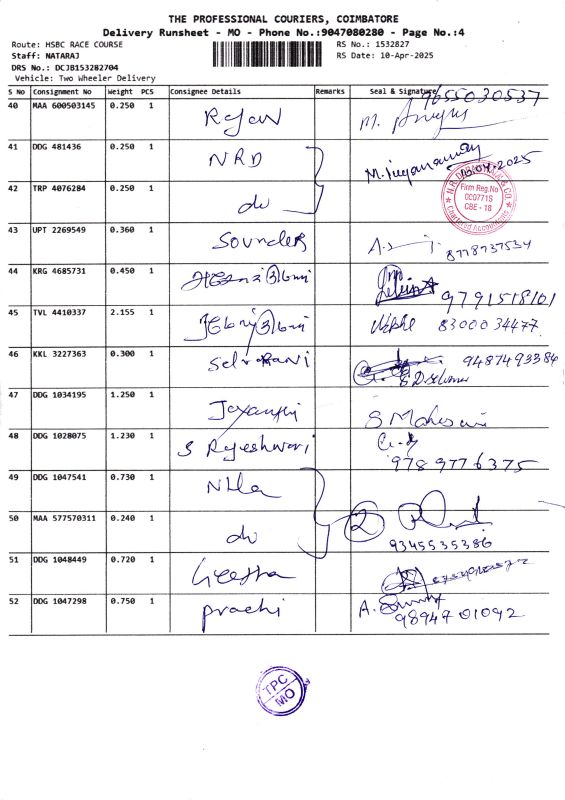 THE PROFESSIONAL COURIERS, COIMBATORE
Delivery Runsheet - MO - Phone No.:9047080280 - Page No.:4
Route: HSBC RACE COURSE RS No.: 1532827
Staff: NATARAJ RS Date: 10-Apr-2025
DRS No.: DCJB153282704
Vehicle: Two Wheeler Delivery
S No Consignment No Weight PCS Consignee Details Remarks Seal & Signature
9655030537
40 MAA 600503145 0.250 1 Rajan M.
41 DDG 481436 0.250 1 NRD
42 TRP 4076284 0.250 1 do
Firm Reg.No
000771S
CBE - 18
Chartered Accountants
43 UPT 2269549 0.360 1 Sounder 8778737534
44 KRG 4685731 0.450 1 9791518101
45 TVL 4410337 2.155 1 8300034477
46 KKL 3227363 0.300 1 Selvarani 9487493384
47 DDG 1034195 1.250 1 Jayanthi
48 DDG 1028075 1.230 1 S Rajeshwari 9789776375
49 DDG 1047541 0.730 1
50 MAA 577570311 0.240 1 do 2 9345535386
51 DDG 1048449 0.720 1 Geetha
52 DDG 1047298 0.750 1 Prachi A. 9894701092
TPC
MO